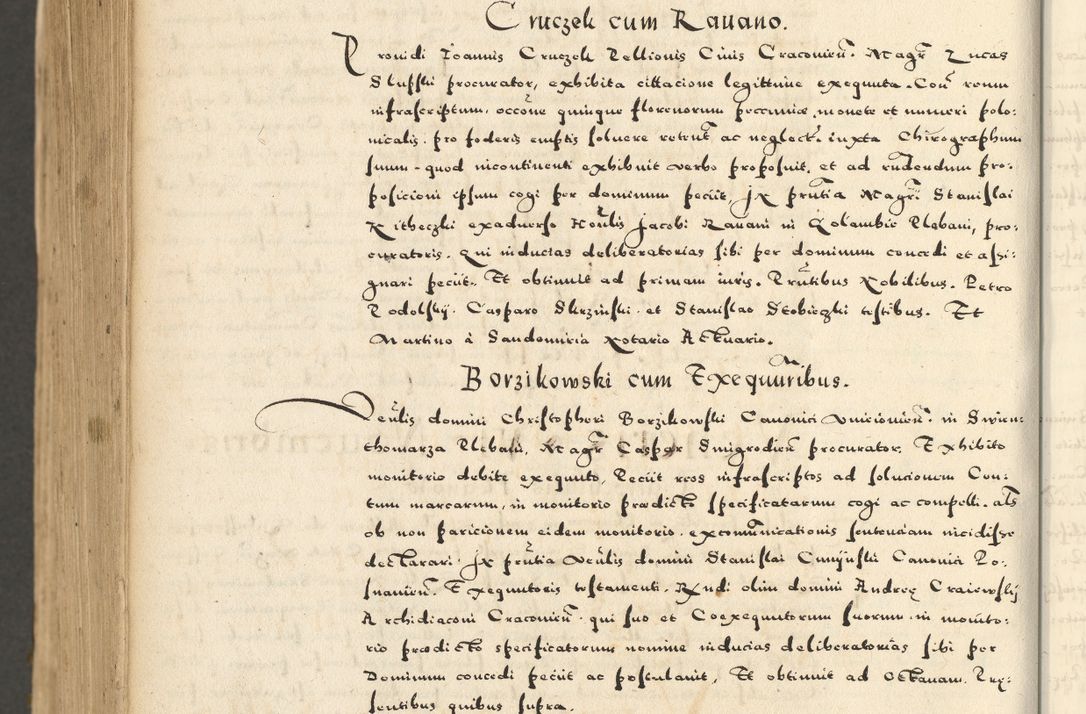 Cruczek cum Rauano.
Prouidi Ioannis Cruczek Pellionis Ciuis Cracouien̄. Magr̄ Lucas
Slupski procurator, exhibita cittacione legittime exequuta. Con̄ reum
infrascriptum, occōne quinque florenorum peccuniæ monete et numeri polo-
nicalis. pro foderis emptis soluere retenͭ ac neglectͭ. iuxta Chirographum
suum. quod incontinenti exhibuit verbo proposuit, et ad rn̄dendum pro-
posicioni ipsum cogi per dominum peciit. In pr̄ntia Magrī Stanislai
Kitheczki exaduerso Hon̄lis Jacobi Rauani in Golambie Plebani, pro-
curatoris. Qui inducias deliberatorias sibi per dominum concedi et assi-
gnari peciit. Et obtinuit ad primam iuris. Pr̄ntibus Nobilibus. Petro
Podolsky. Casparo Skrzinski. et Stanislao Stobieczki testibus. Et
Martino à Sandomiria Notario Actuario.
Borzikowski cum Exequutoribus.
Ven̄lis domini Christopheri Borzikowski Canonici Vnieiouien̄. in Swien-
thomarza Plebani, Magr̄ Caspar Smigrodien̄ procurator. Exhibito
monitorio debite exequuto, Peciit reos infrascriptos ad solucionem Cen-
tum marcarum, in monitorio prædicto specificatarum cogi ac compelli. als̄
ob non paricionem eidem monitorio. excommunicationis sentenciam incidisse
declarari. In pr̄ntia Ven̄lis domini Stanislai Cuniński Canonici Po-
snanien̄. Exequutoris testamenti. Rndi olim domini Andreę Craiewsky
Archidiaconi Cracouien̄. qui suo et Coexequutorum suorum. in monito-
rio prædicto specificatorum nomine inducias deliberatorias sibi per
Dominum concedi peciit ac postulauit, Et obtinuit ad Octauam. Pręs-
sentibus quibus supra.